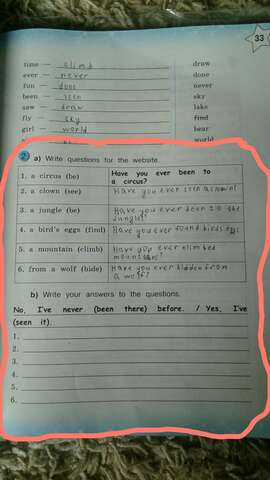 33
time — climb draw
ever — never done
fun — done never
been — seen sky
saw — draw lake
fly — sky find
girl — world bear
world
2 a) Write questions for the website.
1. a circus (be) Have you ever been to
a circus?
2. a clown (see) Have you ever seen a clown?
3. a jungle (be) Have you ever been to the
jungle?
4. a bird's eggs (find) Have you ever found birds eggs
5. a mountain (climb) Have you ever climbed
mountains?
6. from a wolf (hide) Have you ever hidden from
a wolf?
b) Write your answers to the questions.
No, I've never (been there) before. / Yes, I've
(seen it).
1.
2.
3.
4.
5.
6.